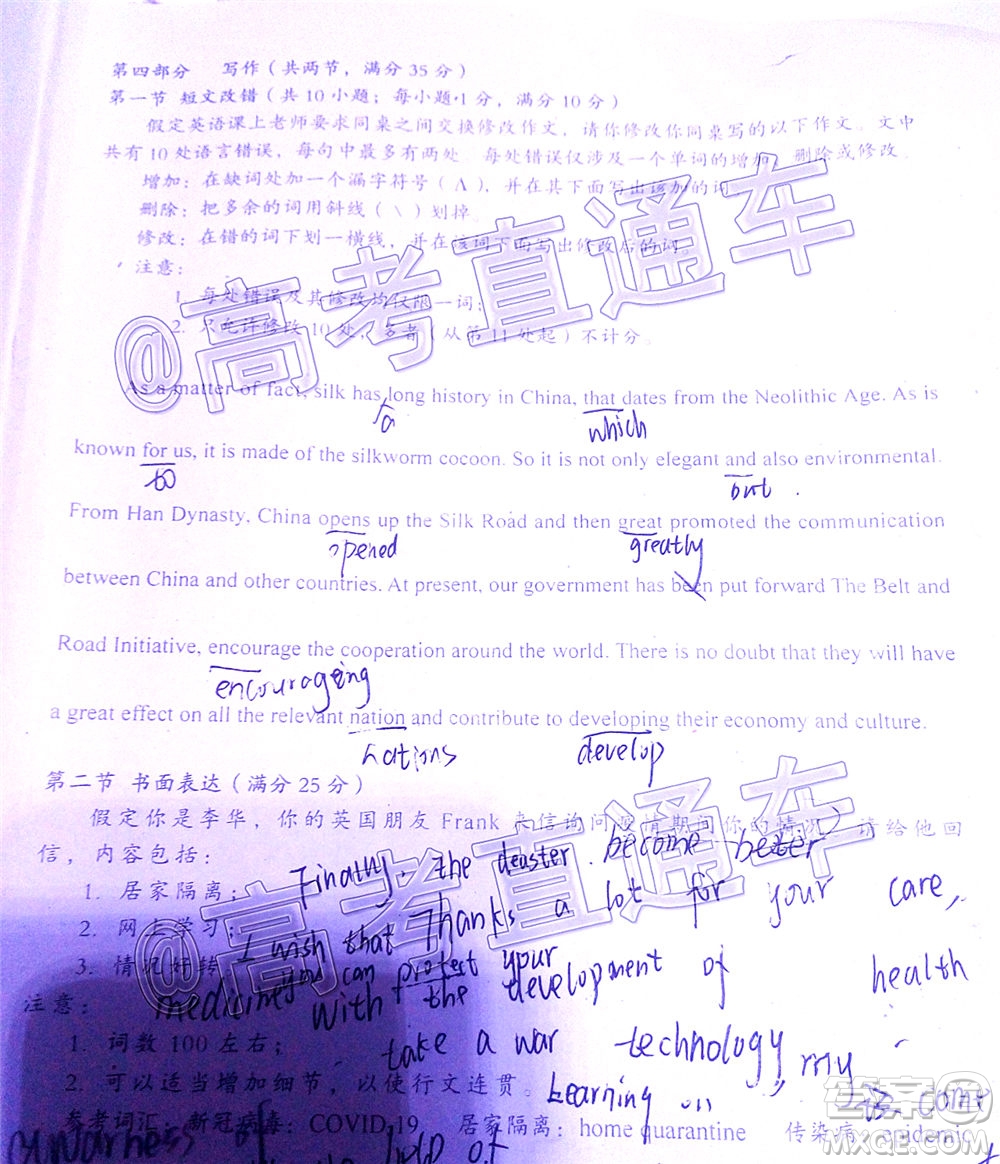 第四部分 写作(共两节,满分35分)
第一节 短文改错(共10小题;每小题1分,满分10分)
假定英语课上老师要求同桌之间交换修改作文,请你修改你同桌写的以下作文。文中
共有10处语言错误,每句中最多有两处。每处错误仅涉及一个单词的增加、删除或修改。
增加:在缺词处加一个漏字符号(∧),并在其下面写出该加的词。
删除:把多余的词用斜线(\)划掉。
修改:在错的词下划一横线,并在该词下面写出修改后的词。
注意:
1. 每处错误及其修改均仅限一词;
2. 只允许修改10处,多者(从第11处起)不计分。
@高考直通车
As a matter of fact, silk has long history in China, that dates from the Neolithic Age. As is
a which
known for us, it is made of the silkworm cocoon. So it is not only elegant and also environmental.
to but
From Han Dynasty, China opens up the Silk Road and then great promoted the communication
opened greatly
between China and other countries. At present, our government has been put forward The Belt and
Road Initiative, encourage the cooperation around the world. There is no doubt that they will have
encouraging
a great effect on all the relevant nation and contribute to developing their economy and culture.
nations develop
第二节 书面表达(满分25分)
假定你是李华,你的英国朋友Frank来信询问疫情期间你的情况,请给他回
信,内容包括:
Finally, the deaster become beter
1. 居家隔离;
Thanks a lot for your care,
2. 网上学习;
I wish that
you can protect your
3. 情况好转
@高考直通车
medicine with the development of health
注意:
take a war technology, my
1. 词数100左右;
2. 可以适当增加细节,以使行文连贯。
Learning on
参考词汇:新冠病毒:COVID-19, 居家隔离:home quarantine 传染病:epidemic
of
答案圈
MXQE.COM